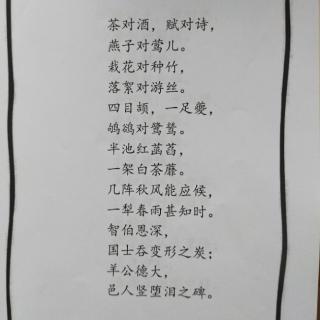 茶对酒，赋对诗，
燕子对莺儿。
栽花对种竹，
落絮对游丝。
四目颉，一足夔，
鸲鹆对鹭鸶。
半池红菡萏，
一架白荼蘼。
几阵秋风能应候，
一犁春雨甚知时。
智伯恩深，
国士吞变形之炭；
羊公德大，
邑人竖堕泪之碑。